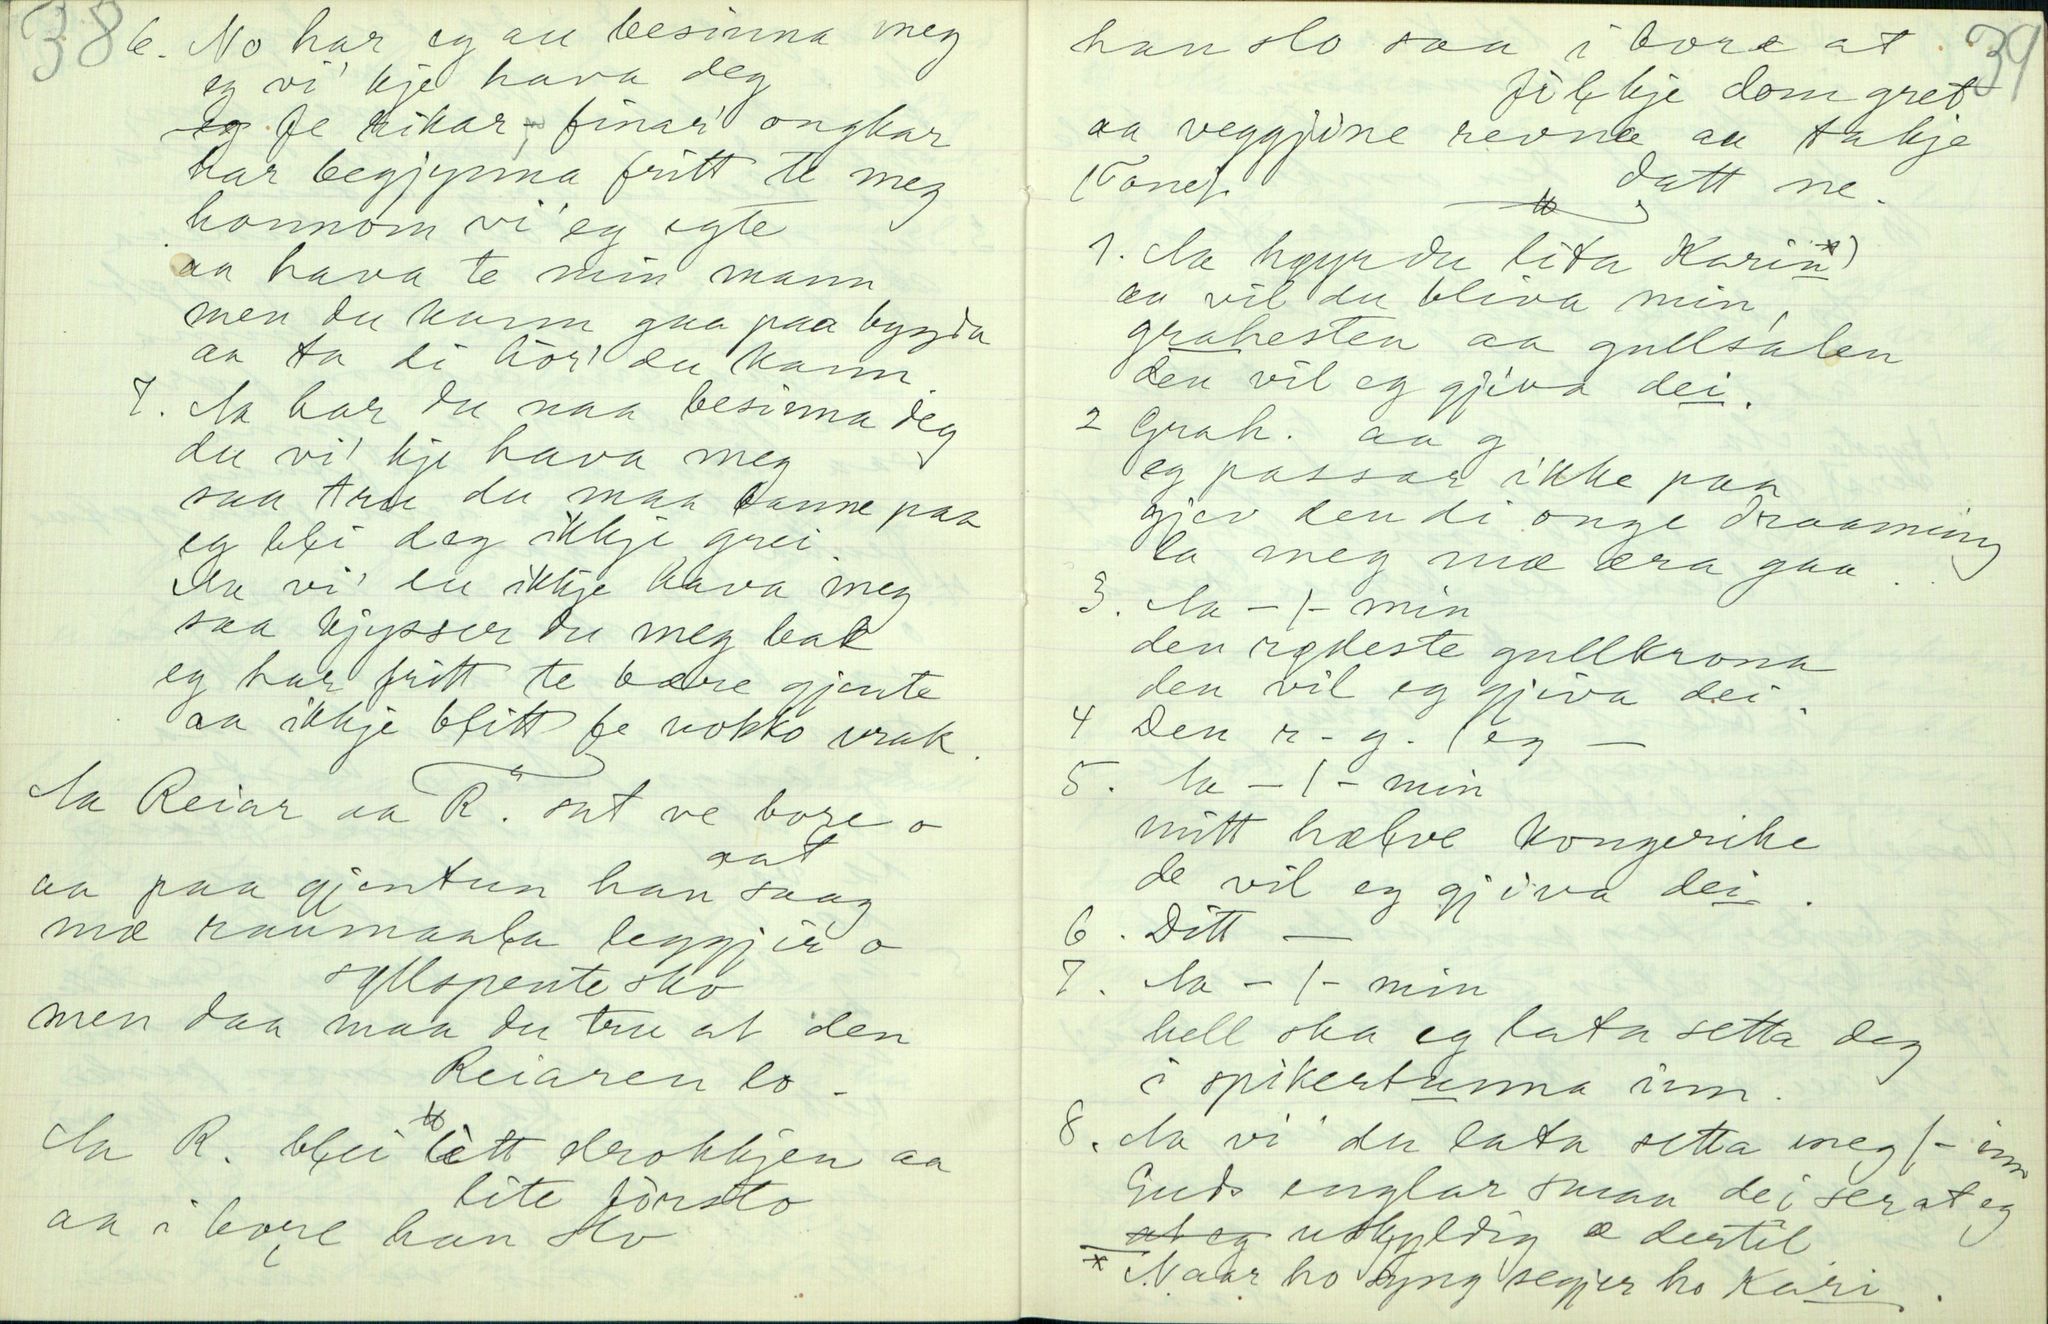 38
6. No har eg au besinna meg
eg vi' kje hava deg
fe rikar, finar' ongkar
har begjynna fritt te meg
honnom vi' eg egte
aa hava te min mann
men du kann gaa paa bygda
aa ta di hór' du kann.
7. Aa har du naa besinna deg
du vi' kje hava meg
saa tru du maa banne paa
eg blei deg ikkje grei.
Aa vi' du ikkje hava meg
saa kjysser du meg bak
eg har fritt te bære gjente
aa ikkje blitt fe nokko vrak.
Aa Reiar aa R. sat ve bore o
aat
aa paa gjentun han saag
mæ raumaala leggjir o
syllspente sko
men daa maa du tru at den
Reiaren lo.
Aa R. blei litt drokkjen aa
lite fórsto
aa i bore han slo
39
han slo saa i bore at
filkje dom gret
aa veggjine revna aa takje
datt ne.
(Tone).
1. Aa høyr du lita Karin*)
aa vil du bliva min,
grahesten aa gullsalen
den vil eg gjiva dei.
2 Grah. aa g
eg passar ikke paa
gjev den di onge draanning
la meg mæ æra gaa.
3. Aa - / - min
den rødeste gullkrona
den vil eg gjiva dei.
4 Den r - g. / eg —
5. Aa - / - min
mitt halve kongerike
de vil eg gjiva dei.
6. Ditt —
7. Aa - / - min
hell ska eg lata setta deg
i spikertunna inn.
8. Aa vi' du lata setta meg / - inn
Guds englar smaa dei ser at eg
at eg uskyldig æ dertil
* Naar ho syng segjer ho Kari.